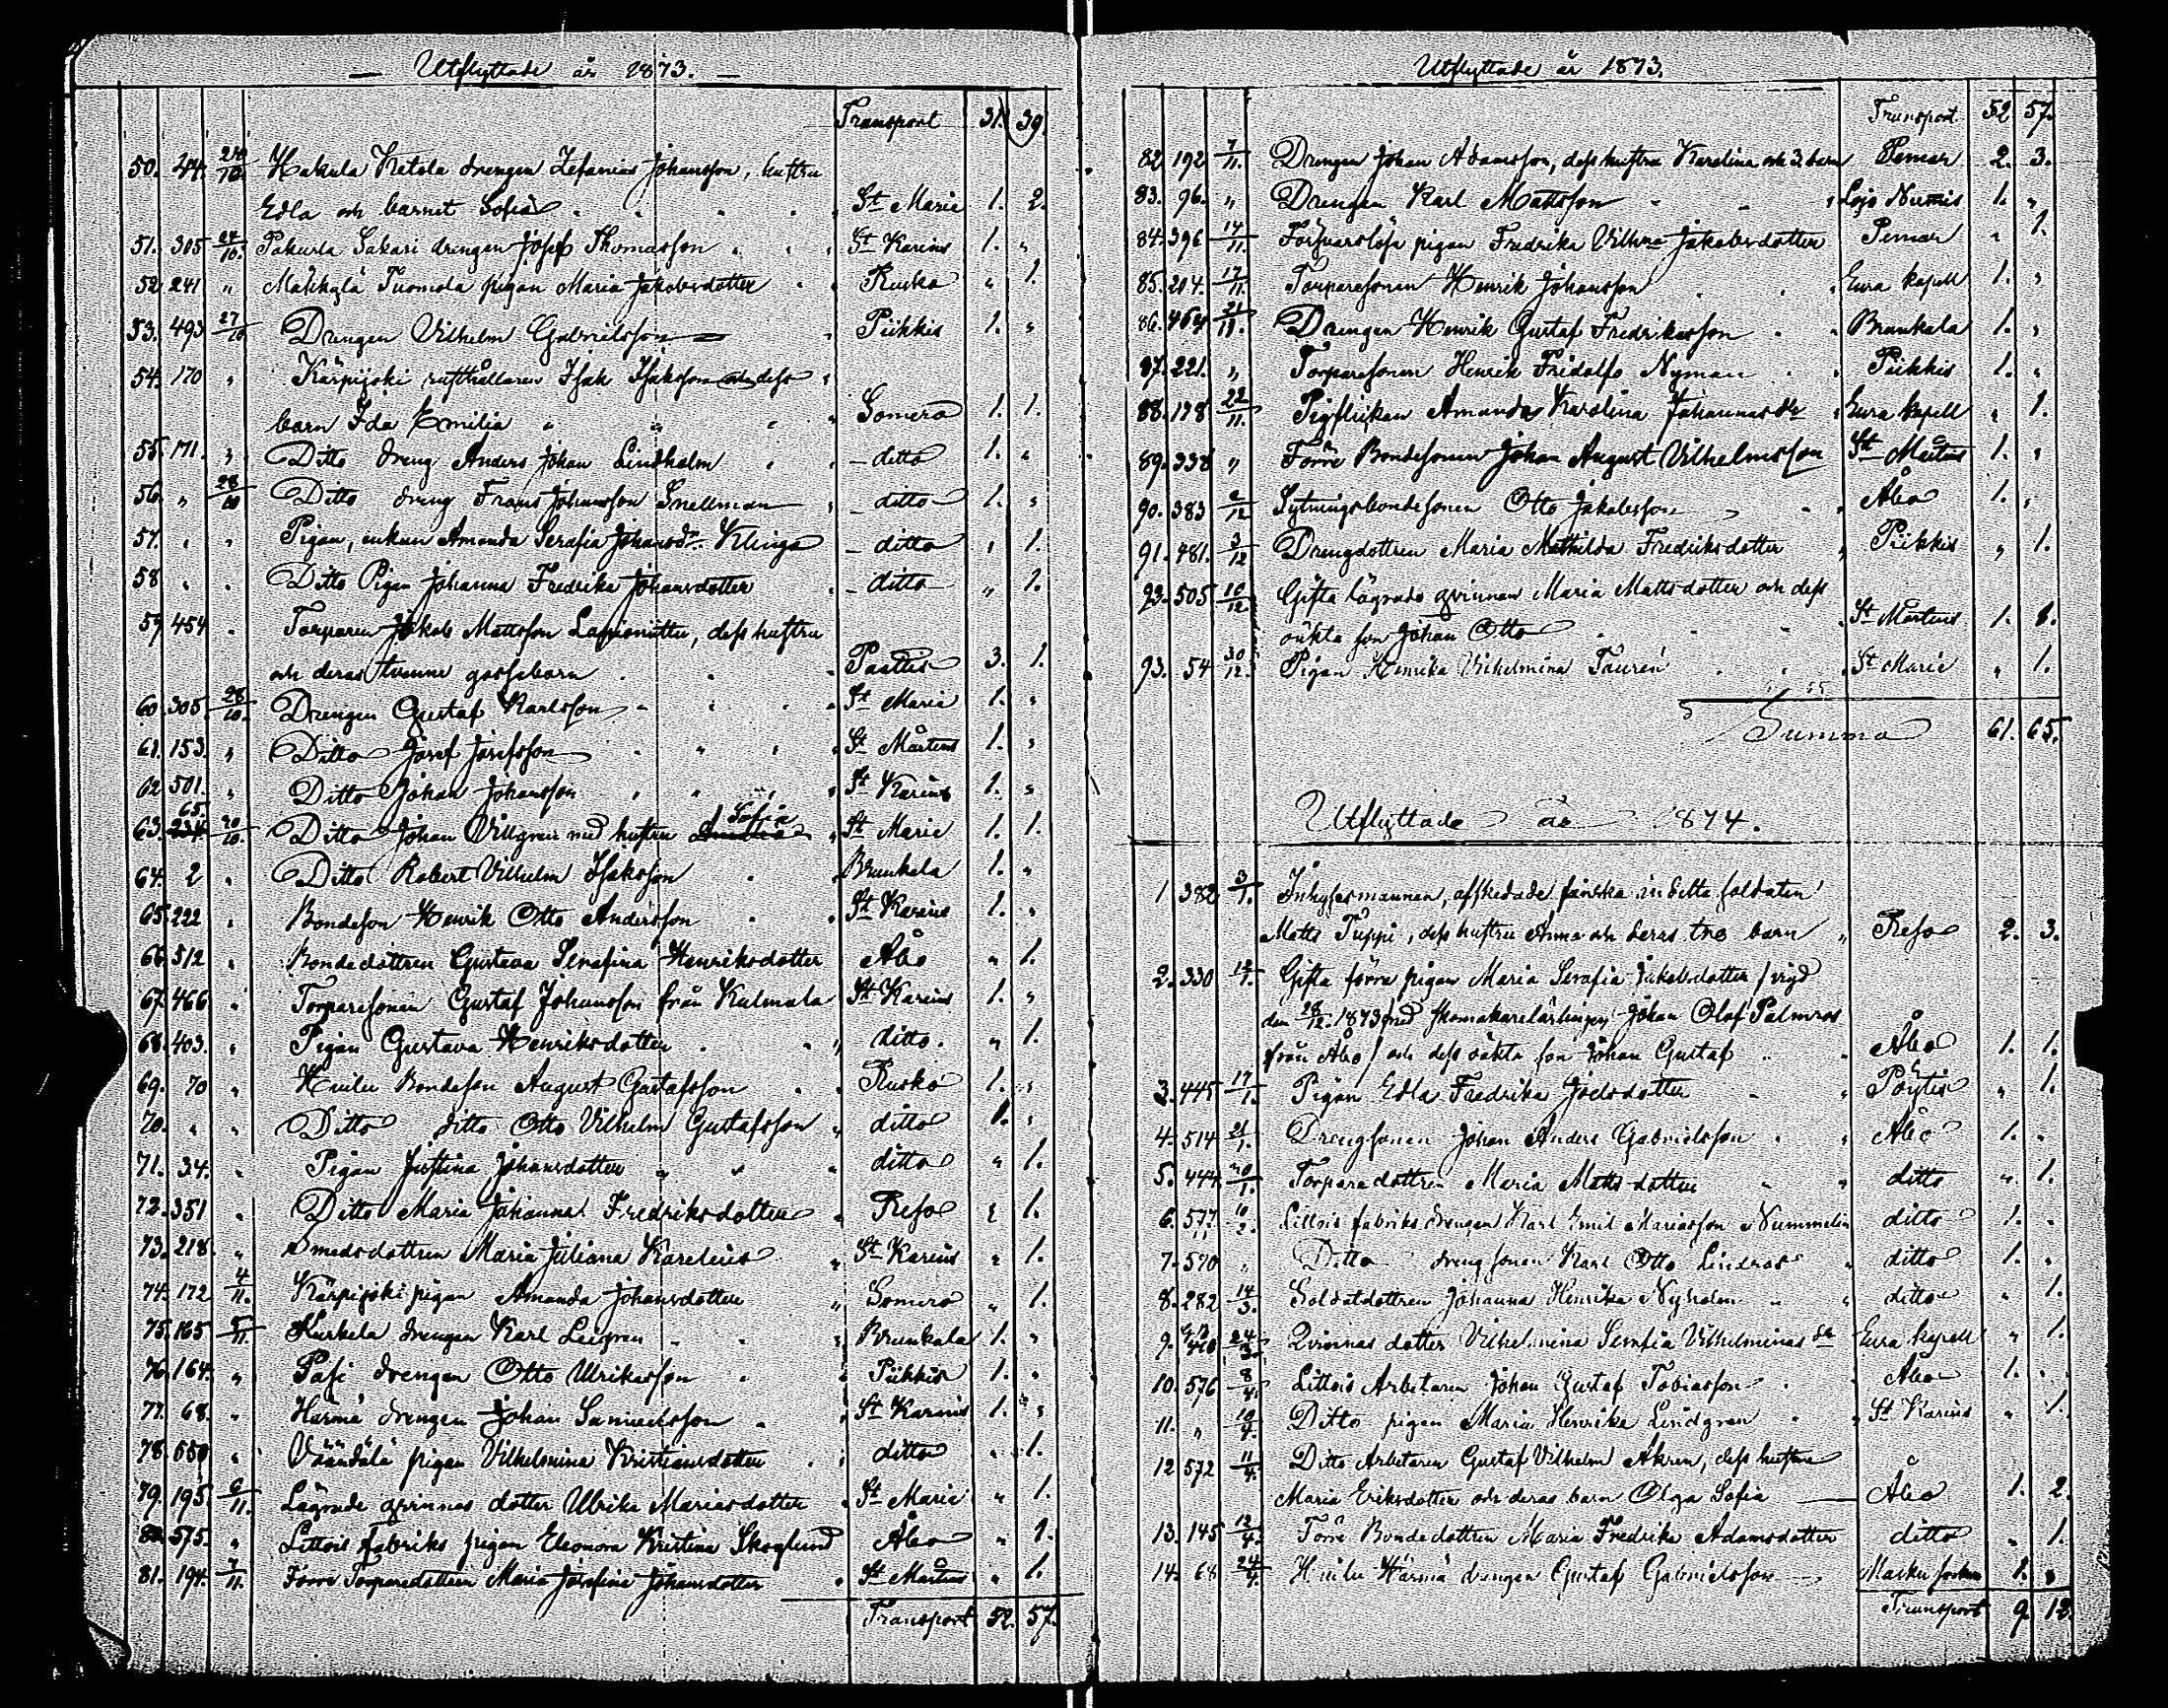 Utflyttade år 1873.
Transport 31. 39.
50. 44. 20/10. Hakula Ketola drengen Zefanias Johansson, hustru
Edla och barnet Sofia St Marie 1. 2.
51. 305 24/10. Pakurla Sakari drengen Josef Thomasson St Karins 1. "
52. 241 " Mäkkylä Tuomola pigan Maria Jakobsdotter Rusko " 1.
53. 493 27/10 Drengen Vilhelm Gabrielsson Piikkis 1. "
54. 170 " Kärpijoki rusthållaren Isak Isaksson och dess
barn Ida Emilia Somero 1. 1.
55. 171. " Ditto dreng Anders Johan Lindholm ditto 1. "
56. " 28/10 Ditto dreng Frans Johansson Snellman ditto 1. "
57. " " Pigan, enkan Amanda Serafia Johansdr Klinga ditto " 1.
58 " " Ditto Pigan Johanna Fredrika Johansdotter ditto " 1.
59 454 " Torparen Jakob Mattsson Lapionitty, dess hustru
och deras tvenne gossebarn Paattis 3. 1.
60. 305. 28/10. Drengen Gustaf Karlsson St Maria 1. "
61. 153. " Ditto Josef Josefsson St Mårtens 1. "
62 501. " Ditto Johan Johansson St Karins 1. "
63. 65. 20/10. Ditto Johan Villgren med hustru Sofia St Marie 1. 1.
64. 2 " Ditto Robert Vilhelm Isaksson Brunkala 1. "
65. 222 " Bondeson Henrik Otto Andersson St Karins 1. "
66. 512 " Bondedottren Gustava Serafina Henriksdotter Åbo " 1.
67. 466 " Torparesonen Gustaf Johansson från Kulmala St Karins 1. "
68. 403. " Pigan Gustava Henriksdotter ditto. " 1.
69. 70 " Huilu Bondeson August Gustafsson Rusko 1. "
70. " " Ditto ditto Otto Vilhelm Gustafsson ditto 1. "
71. 34. " Pigan Justina Johansdotter ditto " 1.
72. 351 " Ditto Maria Johanna Fredriksdotter Reso " 1.
73. 218. " Smedsdottren Maria Juliana Karelius St Karins " 1.
74. 172 4/11. Kärpijoki pigan Amanda Johansdotter Somero " 1.
75. 165 5/11. Kurkela drengen Karl Leegren Brunkala 1. "
76. 164. " Pasi drengen Otto Ulriksson Piikkis 1. "
77. 68. " Härmä drengen Johan Samuelsson St Karins 1. "
78. 550 " Väändälä pigan Vilhelmina Kristiansdotter ditto " 1.
79. 195 6/11. Lägrade qvinnas dotter Ulrika Mariasdotter St Marie " 1.
80. 575. " Littois fabriks pigan Eleonora Kristina Skoglund Åbo " 1.
81. 194. 7/11. Förre Torparedottren Maria Josefina Johansdotter St Mårtens " 1.
Transport 52. 57.
Utflyttade år 1873.
Transport 52 57.
82 192 7/11. Drengen Johan Adamsson, dess hustru Karolina och 3 barn Pemar 2. 3.
83. 96. " Drengen Karl Mattsson Lojo Nummis 1. "
84. 396 14/11. Försvarslösa pigan Fredrika Vilhna Jakobsdotter Pemar " 1.
85. 214. 17/11. Torparesonen Henrik Johansson Eura kapell 1. "
86. 464 21/11. Drengen Henrik Gustaf Fredriksson Brunkala 1. "
87. 221. " Torparesonen Henrik Fridolf Nyman Piikkis 1. "
88. 128 22/11. Pigflickan Amanda Karolina Johannasdr Eura kapell " 1.
89. 338 " Förre Bondesonen Johan August Vilhelmsson St Mårtens 1. "
90. 383 2/12 Sytningsbondesonen Otto Jakobsson Åbo 1. "
91. 481. 3/12 Drengdottren Maria Mathilda Fredriksdotter Piikkis " 1.
93. 505 10/12. Gifta lägrade qvinnan Maria Mattsdotter och dess
oäkta son Johan Otto St Mårtens 1. 1.
93. 54 30/12. Pigan Henrika Vilhelmina Taurén St Marie " 1.
Summa 61. 65.
Utflyttade år 1874.
1 382 3/1. Inhysesmannen, afskedade finska indelta soldaten
Matts Puppi, dess hustru Anna och deras tre barn " Reso 2. 3.
2. 330 12/1. Gifta förra pigan Maria Serafia Jakobsdotter / vigd
den 28/12. 1873 med skomakarelärlingen Johan Olof Palmros
från Åbo / och dess oäkta son Johan Gustaf Åbo 1. 1.
3. 445 17/1. Pigan Edla Fredrika Joelsdotter Pöytis " 1.
4. 514 21/1. Drengsonen Johan Anders Gabrielsson Åbo 1. "
5. 444. 30/1. Torparedottren Maria Mattsdotter ditto " 1.
6. 577. 10/2. Littois fabriks drengen Karl Emil Mariasson Nummelin ditto 1. "
7. 570 " Ditto drengsonen Karl Otto Lindros ditto 1. "
8. 282 14/3. Soldatdottren Johanna Henrika Nyholm ditto " 1.
9. 24/3. Qvinnas dotter Vilhelmina Serafia Vilhelminas dr Eura kapell " 1.
10. 576 8/4. Littois Arbetaren Johan Gustaf Tobiasson Åbo 1. "
11. " 10/4. Ditto pigan Maria Henrika Lindgren St Karins " 1.
12 572 11/4. Ditto Arbetaren Gustaf Vilhelm Åkren, dess hustru
Maria Eriksdotter och deras barn Olga Sofia Åbo 1. 2.
13. 145 12/4. Förre Bondedottren Maria Fredrika Adamsdotter ditto " 1.
14. 68 24/4. Huilu Härmä drengen Gustaf Gabrielsson Masku socken 1. "
Transport 9. 12.